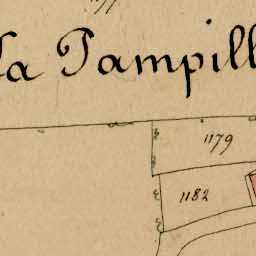 La Pampill
1179
1182